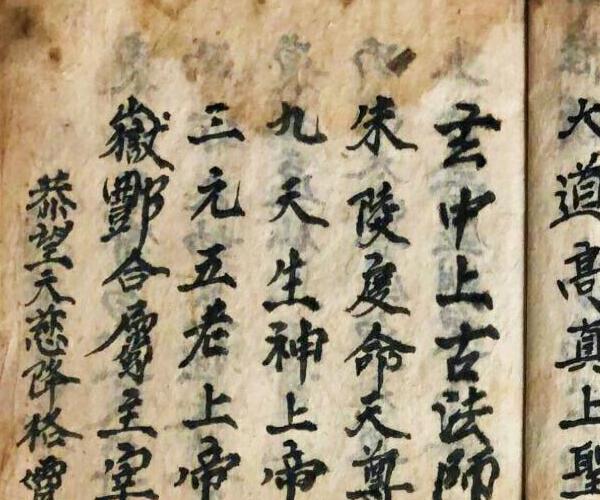 大道高真上聖
玄中上古法師
朱陵度命天尊
九天生神上帝
三元五老上帝
嶽酆合屬主宰
恭望天慈降格